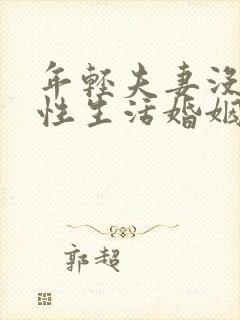 年轻夫妻没
性生活婚姻
郭超